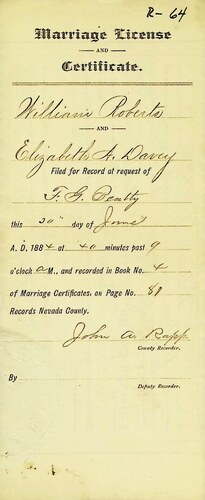 R-64
Marriage License
AND
Certificate.
William Roberts
AND
Elizabeth A. Davey
Filed for Record at request of
F. G. Beatty
this 20" day of June
A. D. 1884 at 40 minutes past 9
o'clock A M., and recorded in Book No. 4
of Marriage Certificates, on Page No. 81
Records Nevada County.
John A. Rapp
County Recorder.
By
Deputy Recorder.